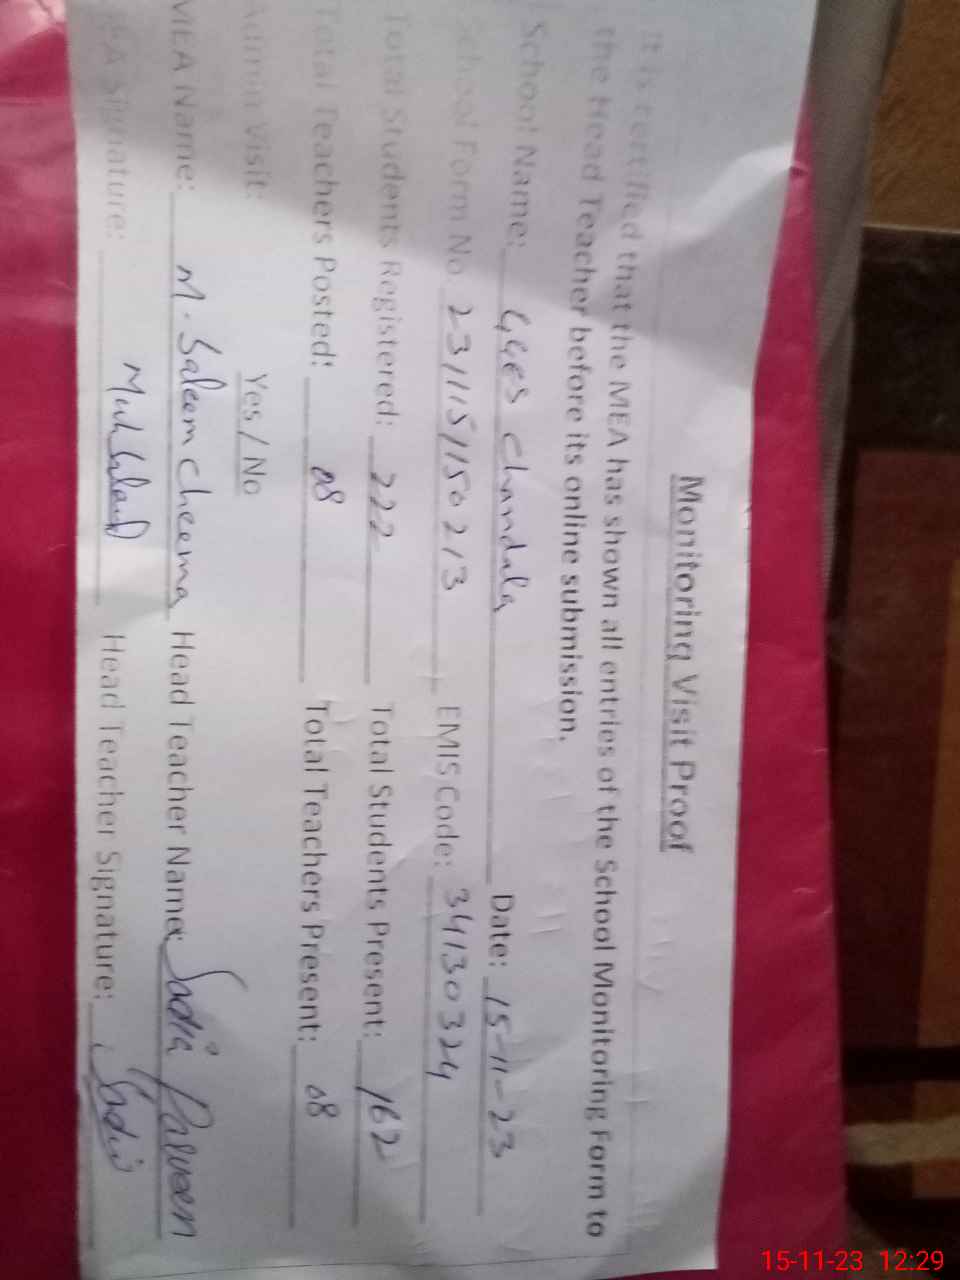 Monitoring Visit Proof
It is certified that the MEA has shown all entries of the School Monitoring Form to
the Head Teacher before its online submission.
School Name: GGES Chandala Date: 15-11-23
School Form No 2311151150213 EMIS Code: 34130324
Total Students Registered: 222 Total Students Present: 162
Total Teachers Posted: 08 Total Teachers Present: 08
Admin Visit: Yes / No
MEA Name: M. Saleem Cheema Head Teacher Name: Sadia Parveen
MEA Signature: Head Teacher Signature: Sadia
15-11-23 12:29